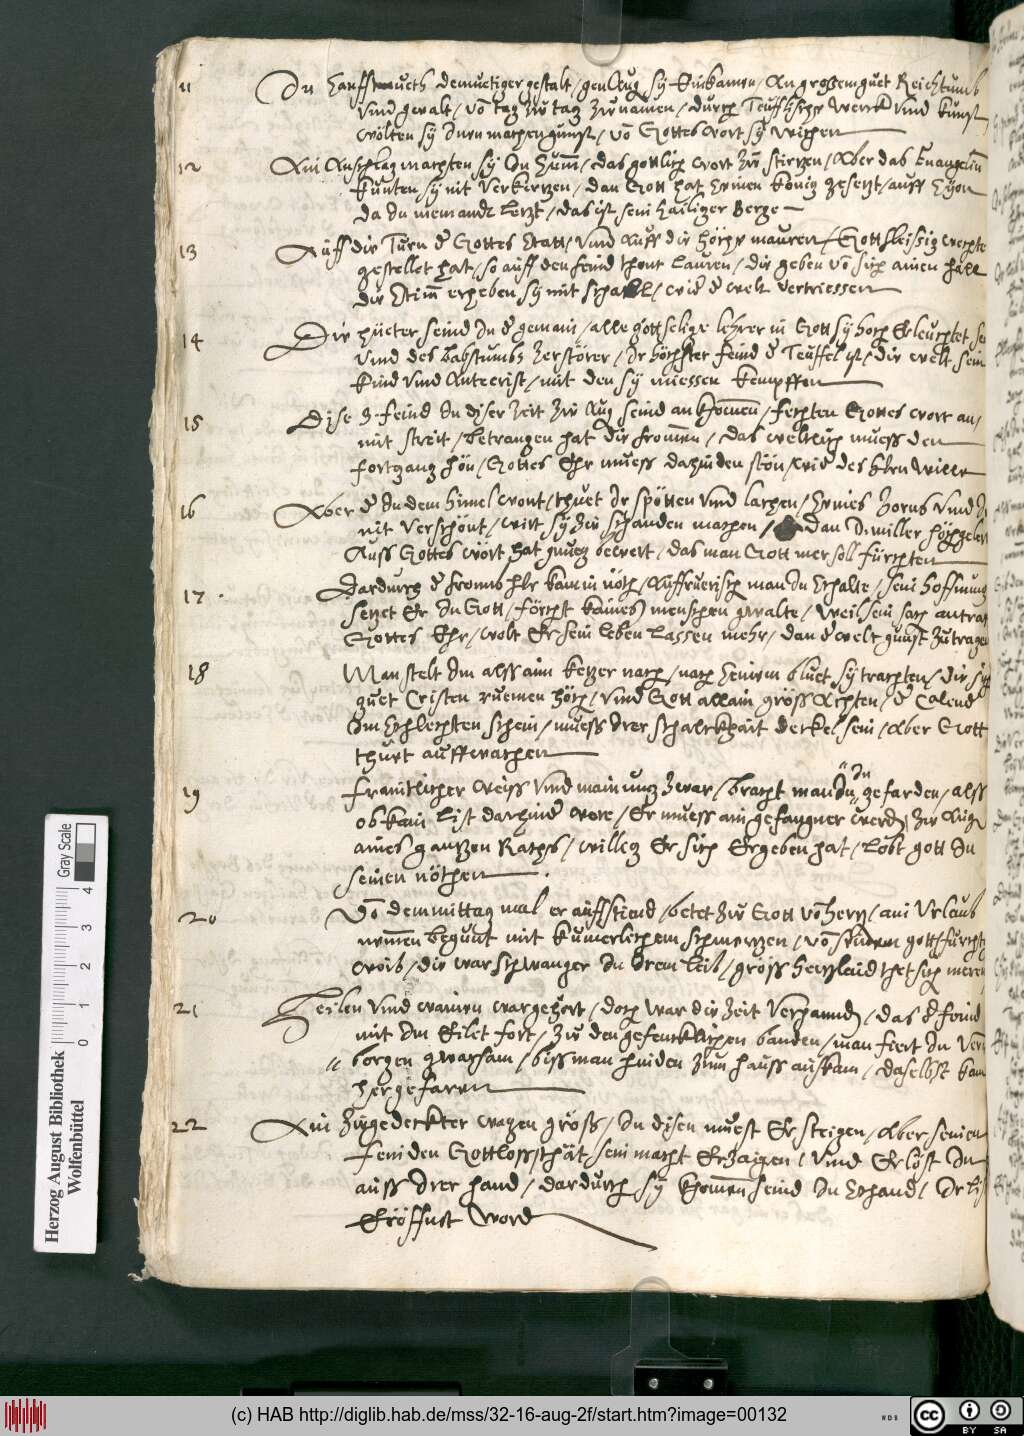 11 In Sanfftmueth demuetiger gestalt / gen Aug. sy Einkamen / An grossem guet Reichtumb
Vnnd gewalt / võ tag zů tag Zu namen / durch Teufflische werck vnnd kunst
wolten sy Inen machen gunst, võ Gottes wort sy wichen
12 Ain Anschlag machten sy In Summ, das gottlich wort Zů stirtzen / Aber das Euangeliũ
Kunten sy nit verkirtzen / dan Gott hat seinen König gesetzt, auff Syon
da In niemandt letzt / das ist sein hailiger Berge
13 Auff die Turn d Gottes Statt / vnnd Auff die Höche mauren / Gott fleissig wechte
gestellet hat, so auff den feind thont lauren, die geben võ sich ainen hall
die Stim erheben sy mit schall / wid d welt vertriessen
14 Die hüeter seind In d gemain / alle gottselige lehrer in Gott sy hoch Erleuchtet
Vnnd des babstumbs zerstörer / Ir höchster feind d Teuffel ist / die welt sein
Kind vnnd Antecrist / mit den sy miessen kempffen
15 Dise 3 feind In diser Zeit Zů Aug. seind ankhomen / fechten Gottes wort an,
mit streit / betrangen hat die fromen / das weltlich muess den
fortgang hon / Gottes Ehr muess dahinden ston / wid des hern Wille
16 Aber d In dem himel wont / thuet Ir spotten vnnd lachen / Seines Zorns vnnd
nit verschönt / wirt sy Zů schanden machen / dan D. miller hochgelert
Auss Gottes wort hat gnueg bewert, das man Gott mer soll fürchten
17 Dardurch d fromb her kam in nöth, Auffruerisch man In Schalte, sein hoffnung
setzet Er In Gott / förcht kaines menschen gwalte, weil sein sach antraf
Gottes Ehr / wolt Er sein leben lassen mehr / dan d welt gunst Zutragen
18 Man stelt Im alss aim ketzer nach, nach seinem bluet sy trachten / die sich
guet Cristen ruemen hoch, vnnd Gott allain gröss Achten, d Calend
Im Schlechten schein, muess Irer schalckhait deckel sein / aber Gott
thuet auffwachen
19 Fraintlicher weiss vnnd mainung zwar, bracht man In "In" gefarden, alss
ob kain list darhind were, Er muess ain gefangner werdn Zů Aug.
aines gantzen Raths, willig Er sich Ergeben hat, lobt gott In
seinen nöthen
20 Võ dem mittag mal er auffstiend, betet Zů Gott võ hertz, ain Vrlaub
nemen begunt mit kumerlichem schmertzen, võ gottfürchtig
weib, die war schwanger In Irem leib, gröss hertzlaid thet sich meren
21 Heilen vnnd wainen war gehört, doch war die Zeit verhannd, das d feind
mit Im Eilet fort, Zů den gefencklichen banden, man fiert In ver
borgen gwarsam, biss man hinden zum hauss auskam, daselbst kam
hergefaren
22 Ain Zůgedeckter wagen gröss, In disen muest Er steigen, Aber seinen
feinden Gottlossthät, sein macht Erzaigen, vnnd Erlöst In
auss Irer hand, dardurch sy khomen seind In Schand, Ir li
Eröffnet word
Herzog August Bibliothek
Wolfenbüttel
0 1 2 3 4
Gray Scale
(c) HAB http://diglib.hab.de/mss/32-16-aug-2f/start.htm?image=00132
cc BY SA